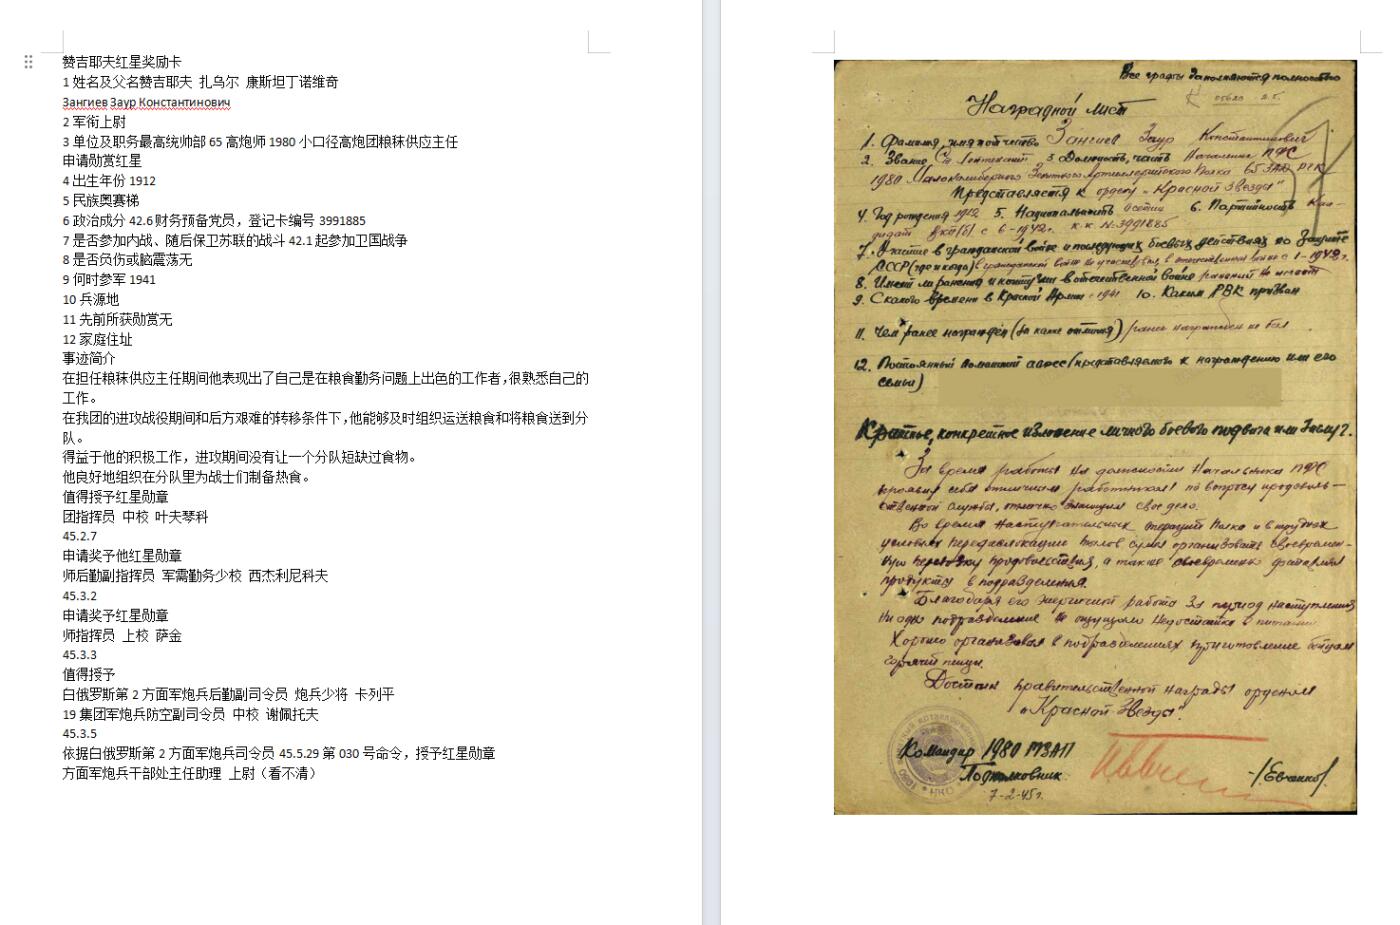 赞吉耶夫红星奖励卡
1 姓名及父名赞吉耶夫 扎乌尔 康斯坦丁诺维奇
Зангиев Заур Константинович
2 军衔上尉
3 单位及职务最高统帅部 65 高炮师 1980 小口径高炮团粮秣供应主任
申请勋赏红星
4 出生年份 1912
5 民族奥赛梯
6 政治成分 42.6 财务预备党员，登记卡编号 3991885
7 是否参加内战、随后保卫苏联的战斗 42.1 起参加卫国战争
8 是否负伤或脑震荡无
9 何时参军 1941
10 兵源地
11 先前所获勋赏无
12 家庭住址
事迹简介
在担任粮秣供应主任期间他表现出了自己是在粮食勤务问题上出色的工作者，很熟悉自己的
工作。
在我团的进攻战役期间和后方艰难的转移条件下，他能够及时组织运送粮食和将粮食送到分
队。
得益于他的积极工作，进攻期间没有让一个分队短缺过食物。
他良好地组织在分队里为战士们制备热食。
值得授予红星勋章
团指挥员 中校 叶夫琴科
45.2.7
申请奖予他红星勋章
师后勤副指挥员 军需勤务少校 西杰利尼科夫
45.3.2
申请奖予红星勋章
师指挥员 上校 萨金
45.3.3
值得授予
白俄罗斯第 2 方面军炮兵后勤副司令员 炮兵少将 卡列平
19 集团军炮兵防空副司令员 中校 谢佩托夫
45.3.5
依据白俄罗斯第 2 方面军炮兵司令员 45.5.29 第 030 号命令，授予红星勋章
方面军炮兵干部处主任助理 上尉（看不清）
Все графы заполняются полностью
Наградной лист
1. Фамилия, имя и отчество Зангиев Заур Константинович
2. Звание Ст. Лейтенант 3 Должность, часть Начальник ПФС
1980 Малокалиберного Зенитного Артиллерийского Полка 65 ЗАД РГК
Представляется к ордену "Красной Звезды"
4. Год рождения 1912 5. Национальность осетин 6. Партийность Кан-
дидат ВКП(б) с 6-1942г. к.к. №3991885
7. Участие в гражданской войне и последующих боевых действиях по защите
СССР (где и когда) в гражданской войне не участвовал, в отечественной войне с 1-1942г.
8. Имеет ли ранения и контузии в отечественной войне ранений не имеет
9. С какого времени в Красной Армии - 1941 10. Каким РВК призван
11. Чем ранее награжден (за какие отличия) ранее награжден не был
12. Постоянный домашний адрес (представляемого к награждению или его
семьи)
Краткое, конкретное изложение личного боевого подвига или заслуг.
За время работы на должности Начальника ПФС
проявил себя отличным работником по вопросу продоволь-
ственной службы, отлично знающим свое дело.
Во время наступательных операций Полка и в трудных
условиях передислокации тылов сумел организовать своевремен-
ную перевозку продовольствия, а также своевременно доставлял
продукты в подразделения.
Благодаря его энергичной работе за период наступления
ни одно подразделение не ощущало недостатка в питании.
Хорошо организовал в подразделениях приготовление бойцам
горячей пищи.
Достоин правительственной награды орденом
"Красной Звезды".
Командир 1980 МЗАП
Подполковник /Евченко/
7-2-45г.